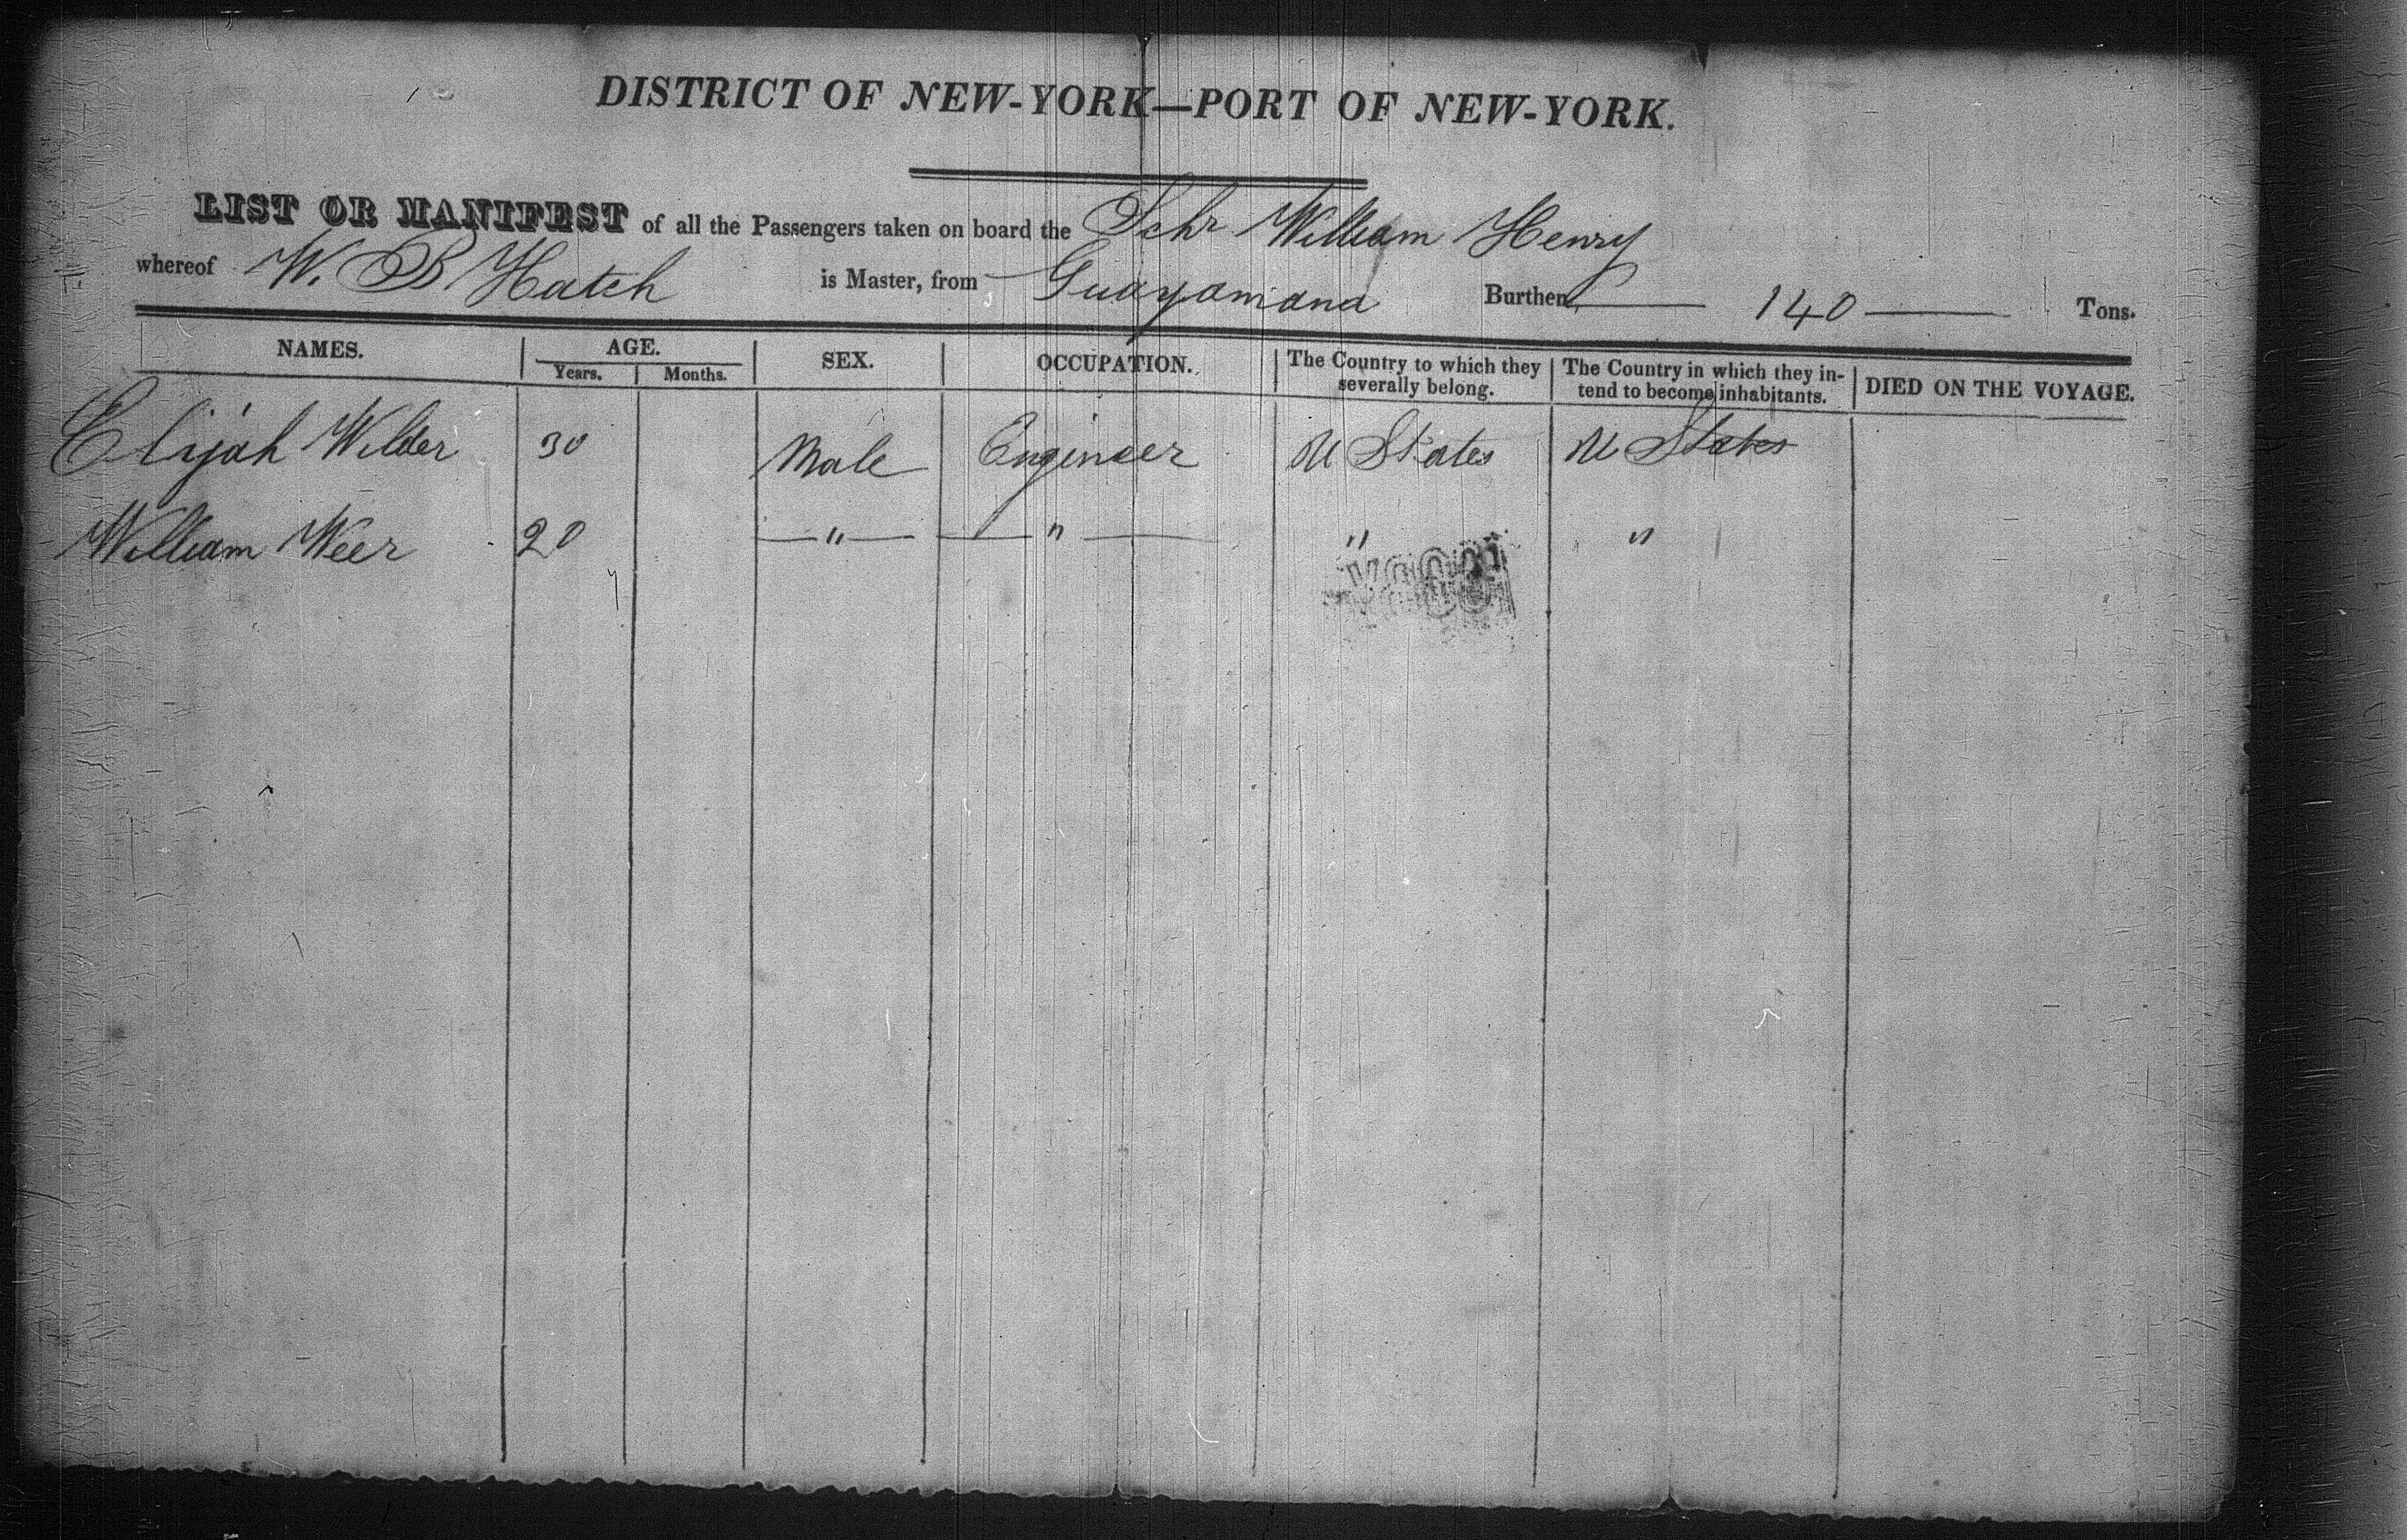 DISTRICT OF NEW-YORK—PORT OF NEW-YORK.
LIST OR MANIFEST of all the Passengers taken on board the Schr William Henry
whereof W. B Hatch is Master, from Guayamana Burthen 140 Tons.
NAMES. AGE. SEX. OCCUPATION. The Country to which they severally belong. The Country in which they intend to become inhabitants. DIED ON THE VOYAGE.
Years. Months.
Elijah Wilder 30 Male Engineer U States U States
William Weer 20 " " " "